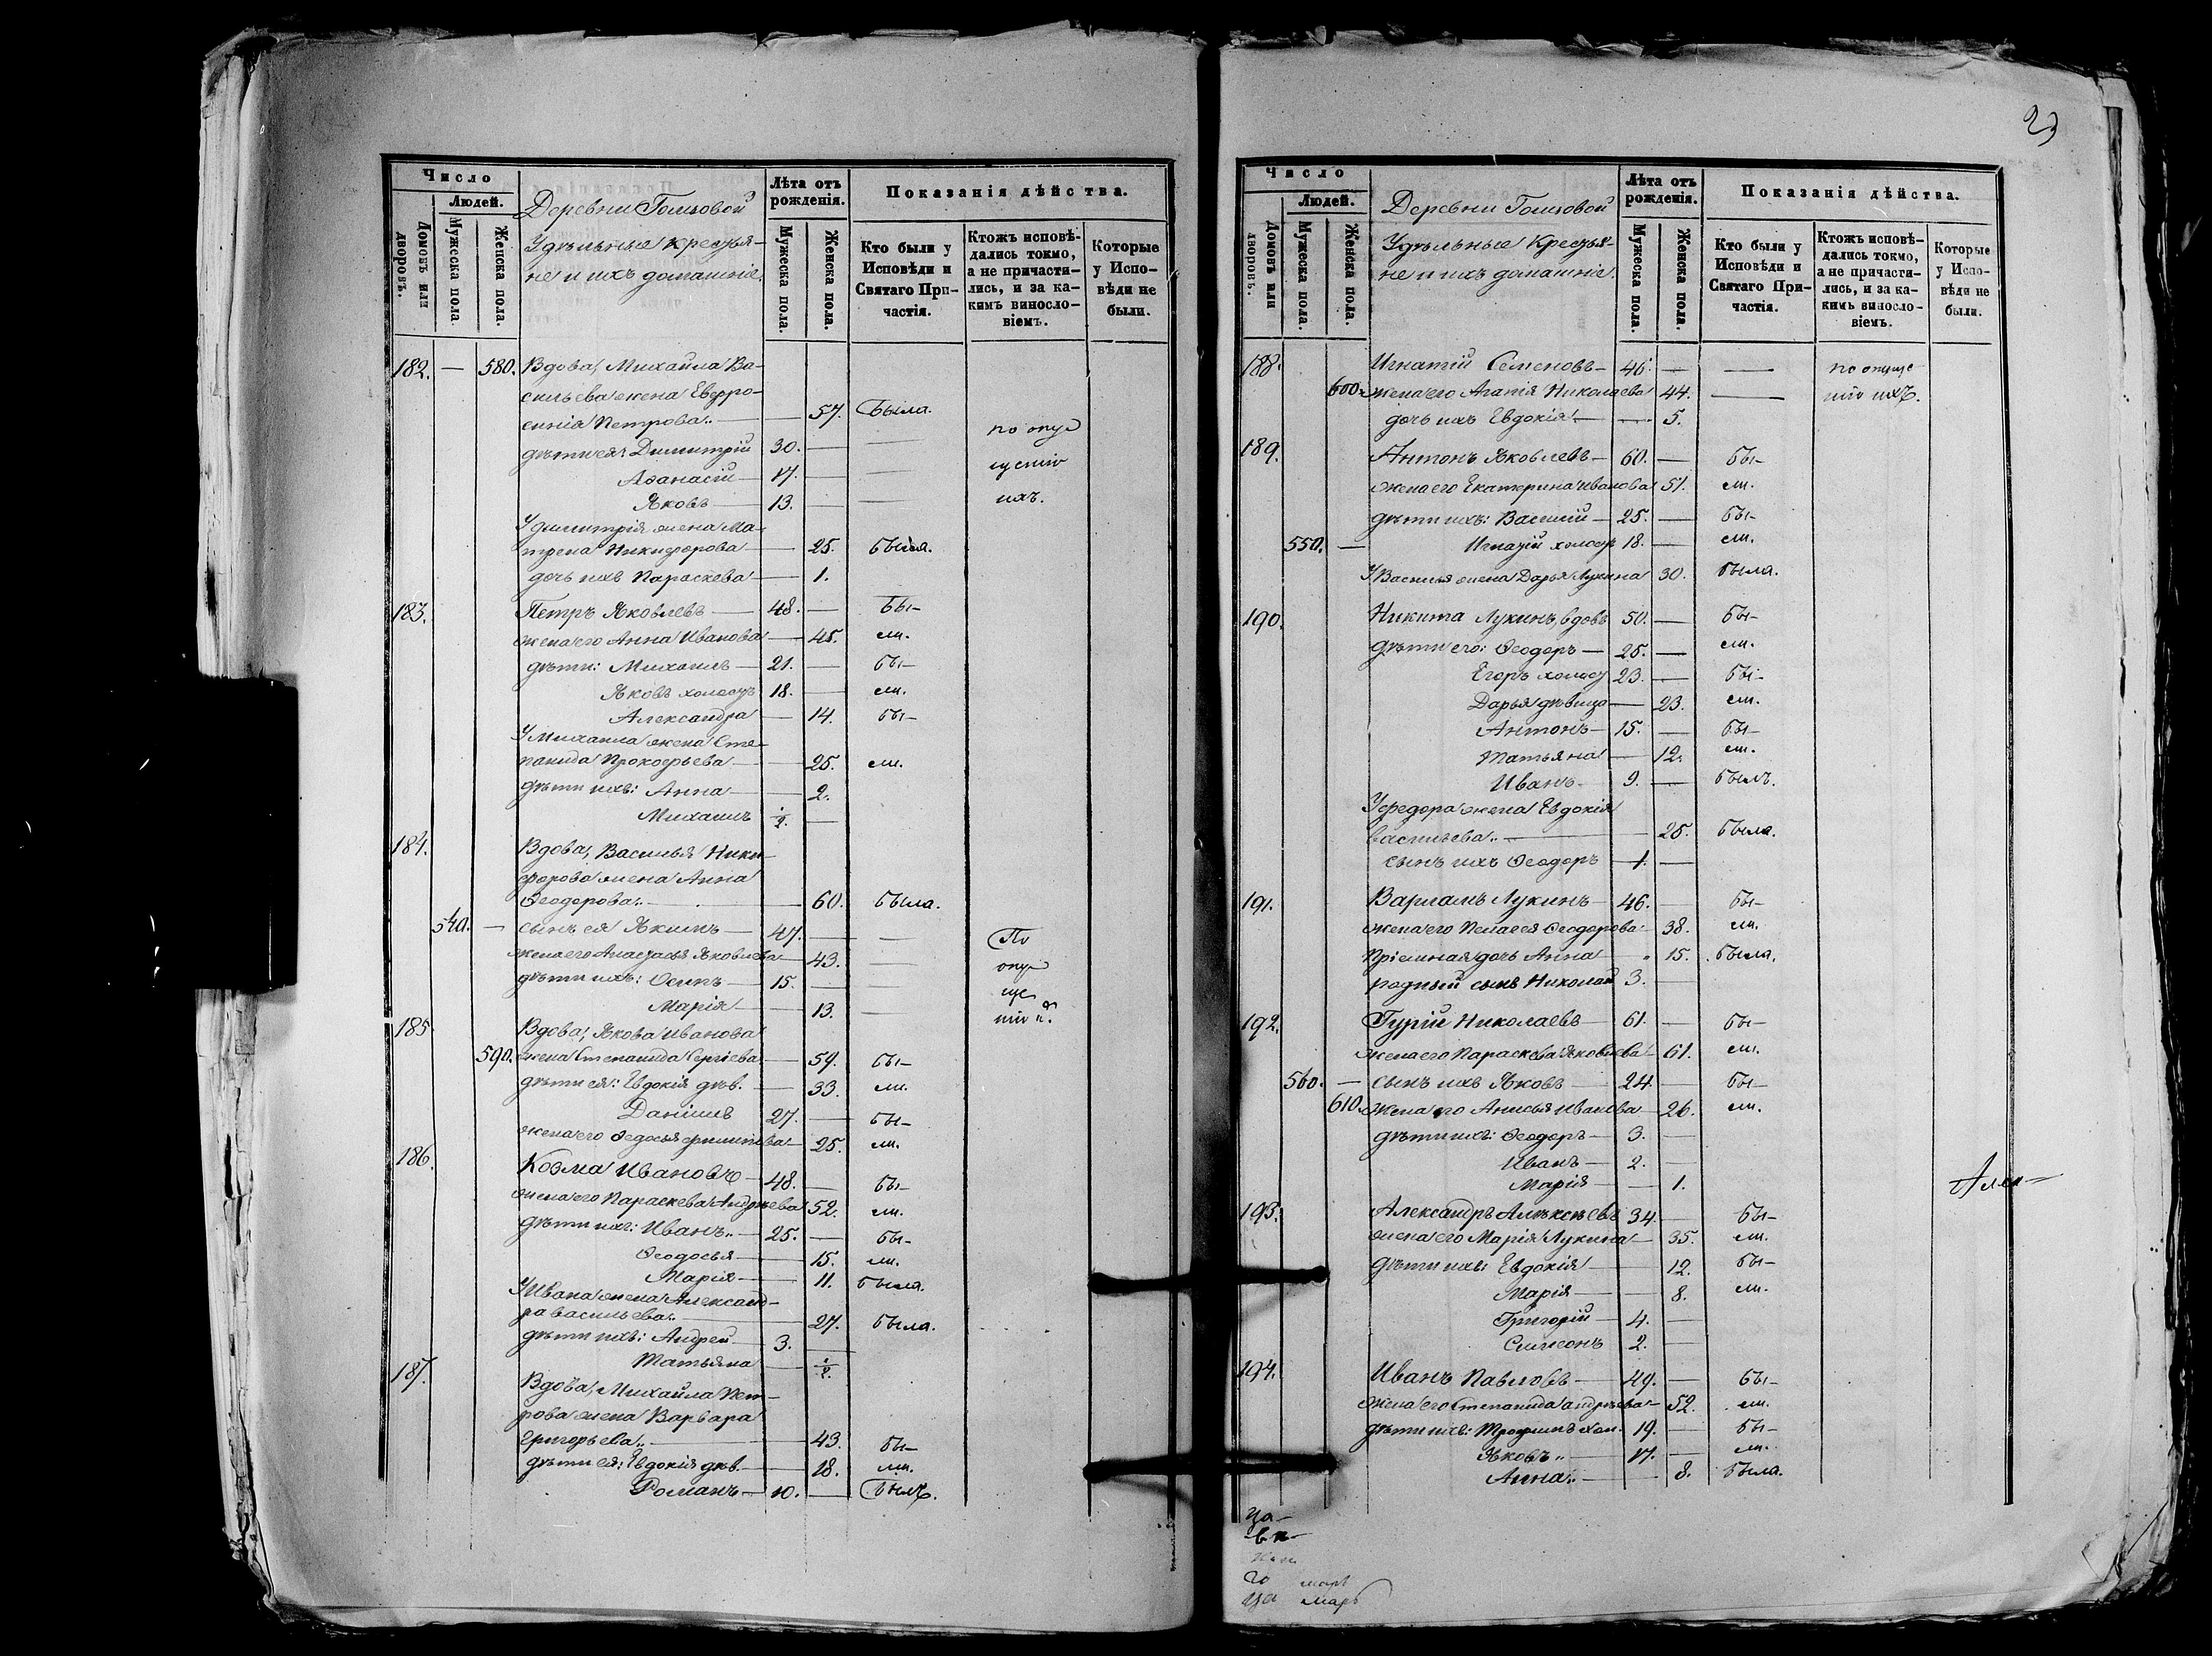 23
Число
Людей.
Домовъ или дворовъ.
Мужеска пола.
Женска пола.
Деревни Голцовой
Удѣльные Крестья-
не и ихъ домашніе.
Лѣта отъ рожденія.
Мужеска пола.
Женска пола.
Показанія дѣйства.
Кто были у Исповѣди и Святаго При-частія.
Ктожъ исповѣ-дались токмо, а не причасти-лись, и за ка-кимъ винносло-віемъ.
Которые у Испо-вѣди не были.
182. — 580. Вдова, Михайла Ва-
сильева жена Евфро-
синія Петрова — 57. Была.
дѣти ея: Димитрій 30. — — по опу
Аѳанасій — 17. — — щенію
Яковъ — 13. — — ихъ.
У Димитрія жена Ма-
трена Никифорова — 25. была.
дочь ихъ Параскева — 1.
183. Петръ Яковлевъ — 48. — бы-
жена его Анна Иванова — 45. ли.
дѣти: Михаилъ — 21. — бы-
Яковъ холостъ 18. — ли.
Александра — 14. бы-
У Михаила жена Сте-
панида Прокофьева — 25. ли.
дѣти ихъ: Анна — 2.
Михаилъ 1/2. —
184. Вдова, Василья Ники-
форова жена Анна
Ѳеодорова — 60. была.
540. — сынъ ея Якимъ — 47. — — По
жена его Анастасья Яковлева — 43. — опу
дѣти ихъ: Осипъ — 15. — — ще
Марія — 13. — нію и.
185. Вдова, Якова Иванова
590. жена Степанида Сергіева — 59. бы-
дѣти ея: Евдокія дѣв. — 33. ли.
Даніилъ 27. — бы-
жена его Ѳедосья Филипова — 25. ли.
186. Козма Ивановъ — 48. — бы-
жена его Параскева Андреева 52. ли.
дѣти ихъ: Иванъ — 25. — бы-
Ѳеодосья — 15. ли.
Марія — 11. была.
У Ивана жена Александ-
ра Васильева — 27. была.
дѣти ихъ: Андрей 3. —
Татьяна — 1/2.
187. Вдова, Михайла Пет-
рова жена Варвара
Григорьева — 43. бы-
дѣти ея: Евдокія дѣв. — 18. ли.
Романъ — 10. — былъ.
Число
Людей.
Домовъ или дворовъ.
Мужеска пола.
Женска пола.
Деревни Голцовой
Удѣльные Крестья-
не и ихъ домашніе.
Лѣта отъ рожденія.
Мужеска пола.
Женска пола.
Показанія дѣйства.
Кто были у Исповѣди и Святаго При-частія.
Ктожъ исповѣ-дались токмо, а не причасти-лись, и за ка-кимъ винносло-віемъ.
Которые у Испо-вѣди не были.
188. Игнатій Семеновъ — 46. — — по опуще
600. жена его Агапія Николаева 44. — нію ихъ.
дочь ихъ Евдокія — 5.
189. Антонъ Яковлевъ — 60. — бы-
жена его Екатерина Иванова 51. ли.
дѣти ихъ: Василій — 25. — бы-
550. — Игнатій холостъ 18. — ли.
У Василья жена Дарья Лукина 30. была.
190. Никита Лукинъ, вдовъ 50. — бы-
дѣти его: Ѳеодоръ — 25. — ли.
Егоръ холост 23. — бы-
Дарья дѣвица — 23. ли.
Антонъ — 15. — бы-
Татьяна — 12. ли.
Иванъ — 9. — былъ.
У Ѳедора жена Евдокія
Васильева — 25. была.
сынъ ихъ Ѳеодоръ 1. —
191. Варламъ Лукинъ — 46. — бы-
жена его Пелагея Ѳеодорова 38. ли.
Пріемная дочь Анна — 15. была.
родный сынъ Николай 3. —
192. Гурій Николаевъ — 61. — бы-
жена его Параскева Яковлева — 61. ли.
560. — сынъ ихъ Яковъ — 24. — бы-
610. жена его Анисья Иванова — 26. ли.
дѣти ихъ: Ѳеодоръ — 3. —
Иванъ — 2. —
Марія — 1.
193. Александръ Алексѣевъ 34. — бы-
жена его Марія Лукина — 35. ли.
дѣти ихъ: Евдокія — 12. бы-
Марія — 8. ли.
Григорій — 4. —
Симеонъ 2. —
194. Иванъ Павловъ — 49. — бы-
жена его Степанида Андреева — 52. ли.
дѣти ихъ: Трофимъ хол. 19. — бы-
Яковъ — 17. — ли.
Анна — 8. была.
Алек-